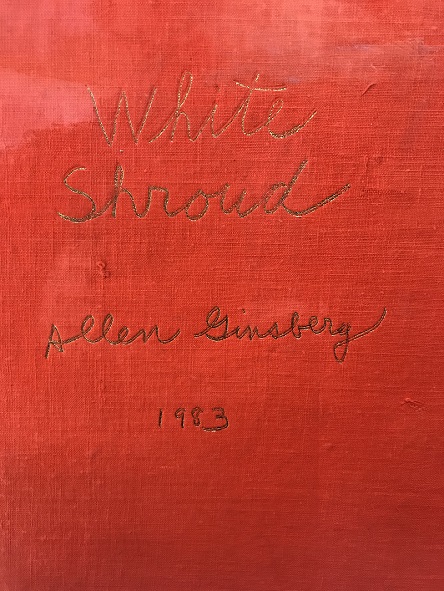 White
Shroud
Allen Ginsberg
1983